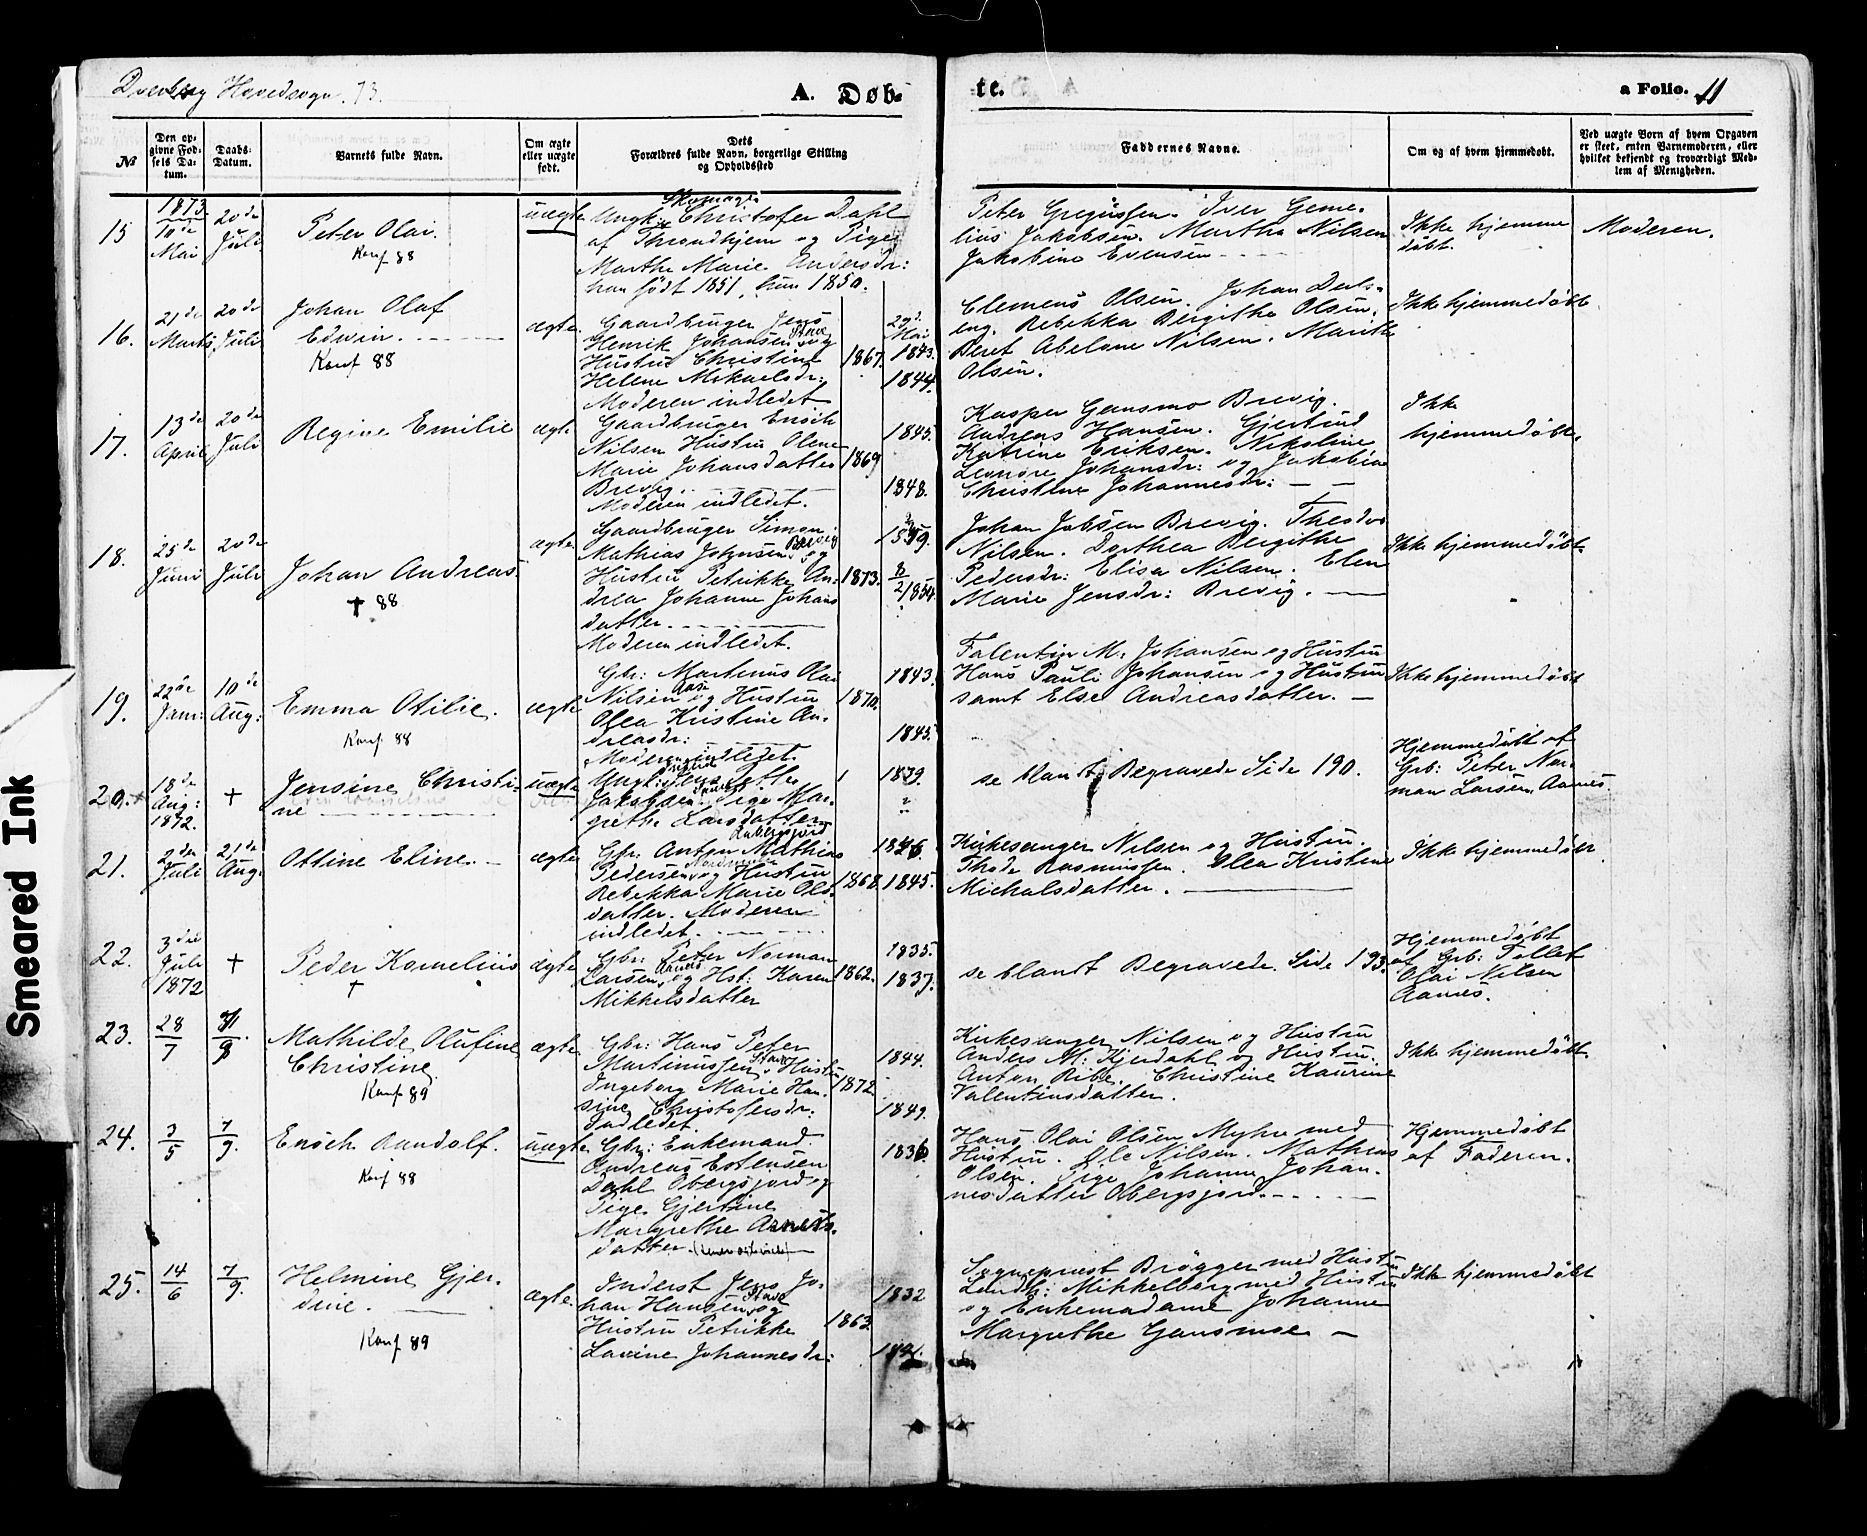 Dverberg Hovedsogn. 73.
A. Døb-
te.
a Folio. 11
Smeared Ink
№
Den op-
givne Fød-
sels Da-
tum.
Daabs-
Datum.
Barnets fulde Navn.
Om ægte
eller uægte
født.
Dets
Forældres fulde Navn, borgerlige Stilling
og Opholdssted
Faddernes Navne.
Om og af hvem hjemmedøbt.
Ved uægte Born af hvem Opgaven
er skeet, enten Barnemoderen, eller
hvilket bekjendt og troværdigt Med-
lem af Menigheden.
15
1873
10de
Mai
20de
Juli
Peter Olai.
Konf 88
uægte
Ungk: Christofer Dahl
af Throndhjem og Pige
Marthe Marie Andersdr:
han født 1851, hun 1850.
Peter Gregussen. Iver Geme-
lius Jakobsen. Martha Nilsen
Jakobine Evensen
Ikke hjemme
døbt.
Moderen.
16.
21de
Marts
20de
Juli
Johan Olaf
Edwin.
Konf 88
ægte.
Gaardbruger Jens
Henrik Johansen Stave og
Hustru Christine
Helene Mikaelsdr:
Moderen indledet
1867.
29d.
Mai
1843.
1844.
Clemens Olsen. Johan Dals-
eng. Rebekka Bergithe Olsen.
Beret Abelone Nilsen. Marith
Olsen.
Ikke hjemmedøbt
17.
13de
April
20de
Juli
Regine Emilie
ægte
Gaardbruger Enoch
Nilsen Hustru Olene
Marie Johansdatter
Brevig.
Moderen indledet.
1869
1845.
1848.
Kasper Gansmo Brevig.
Andreas Hansen. Gjertrud
Katrine Eriksen. Nikoline
Leonore Johansdr: og Jakobine
Christine Johannesdr:
Ikke
hjemmedøbt.
18.
25de
Juni
20de
Juli
Johan Andreas.
† 88
ægte
Gaardbruger Simon
Mathias Johnsen Brevig og
Hustru Petrikke An-
drea Johanne Johans
datter.
Moderen indledet.
1873.
8/2 1854.
Johan Jobsen Brevig. Theodor
Nilsen. Dorthea Bergithe
Pedersdr: Elisa Nilsen. Elen
Marie Jensdr: Brevig.
Ikke hjemmedøbt
19.
22de
Jan:
10de
Aug:
Emma Otilie.
Konf 88
ægte
Gbr: Martinus Olai
Nilsen Aase og Hustru
Olea Kristine An-
dreasdr:
Moderen indledet.
1870.
1843.
1845.
Falentin M: Johansen og Hustru
Hans Pauli Johansen og Hustru
samt Else Andreasdatter.
Ikke hjemmedøbt
20.
18de
Aug:
1872.
†
Jensine Christi-
ne
uægte
Jakobsen. Pige Mar-
grethe Larsdatter
1839
"
se blandt Begravede Side 190.
Hjemmedøbt af
Grb: Peter Nor-
man Larsen Aanes.
21.
2den
Juli
21de
Aug.
Ottine Eline.
ægte
Gbr. Anton Mathias
Pedersen og Hustru
Rebekka Marie Ols-
datter. Moderen
indledet.
1868.
1846.
1845.
Kirkesanger Nilsen og Hustru.
Thode Rasmussen. Olea Kristine
Michalsdatter.
Ikke hjemmedøbt
22.
3die
Juli
1872
†
Peder Kornelius
†
ægte
Gbr: Peter Norman
Larsen Aanes og Hst: Karen
Mikkelsdatter
1862.
1835.
1837.
se blandt Begravede. Side 193.
Hjemmedøbt
af Grb: Tollef
Olai Nilsen
Aanes.
23.
28/7
31/8.
Mathilde Olufine
Christine.
Konf 89
ægte
Gbr: Hans Peter
Martinussen Stave Hustru
Ingeborg Marie Han-
sine Christofersdr:
Indledet.
1872
1844.
1849.
Kirkesanger Nilsen og Hustru
Anders M: Kjerdahl og Hustru.
Anton Ribe. Christine Kaurine
Valentinsdatter.
Ikke hjemmedøbt
24.
3/5
7/9.
Enoch Randolf.
Konf 88
uægte
Gbr: Enkemand
Andreas Estensen
Dahl Åbergsjord og
Pige Gjertine
Margrethe Arnets-
datter.
1836.
Hans Olai Olsen Myhre med
Hustru. Ole Nilsen. Mathias
Olsen. Pige Johanne Johan-
nesdatter Åbergsjord.
Hjemmedøbt
af Faderen.
25.
14/6
7/9.
Helmine Gjer-
dine.
Konf 89
ægte.
Inderst Jens Jo-
han Hansen Stave og
Hustru Petrikke
Lavine Johannesdr:
1863.
1832
1841.
Sogneprest Brøgger med Hustru
Lensm: Mikkelborg med Hustru
og Enkemadame Johanne
Margrethe Gansmoe
Ikke hjemmedøbt